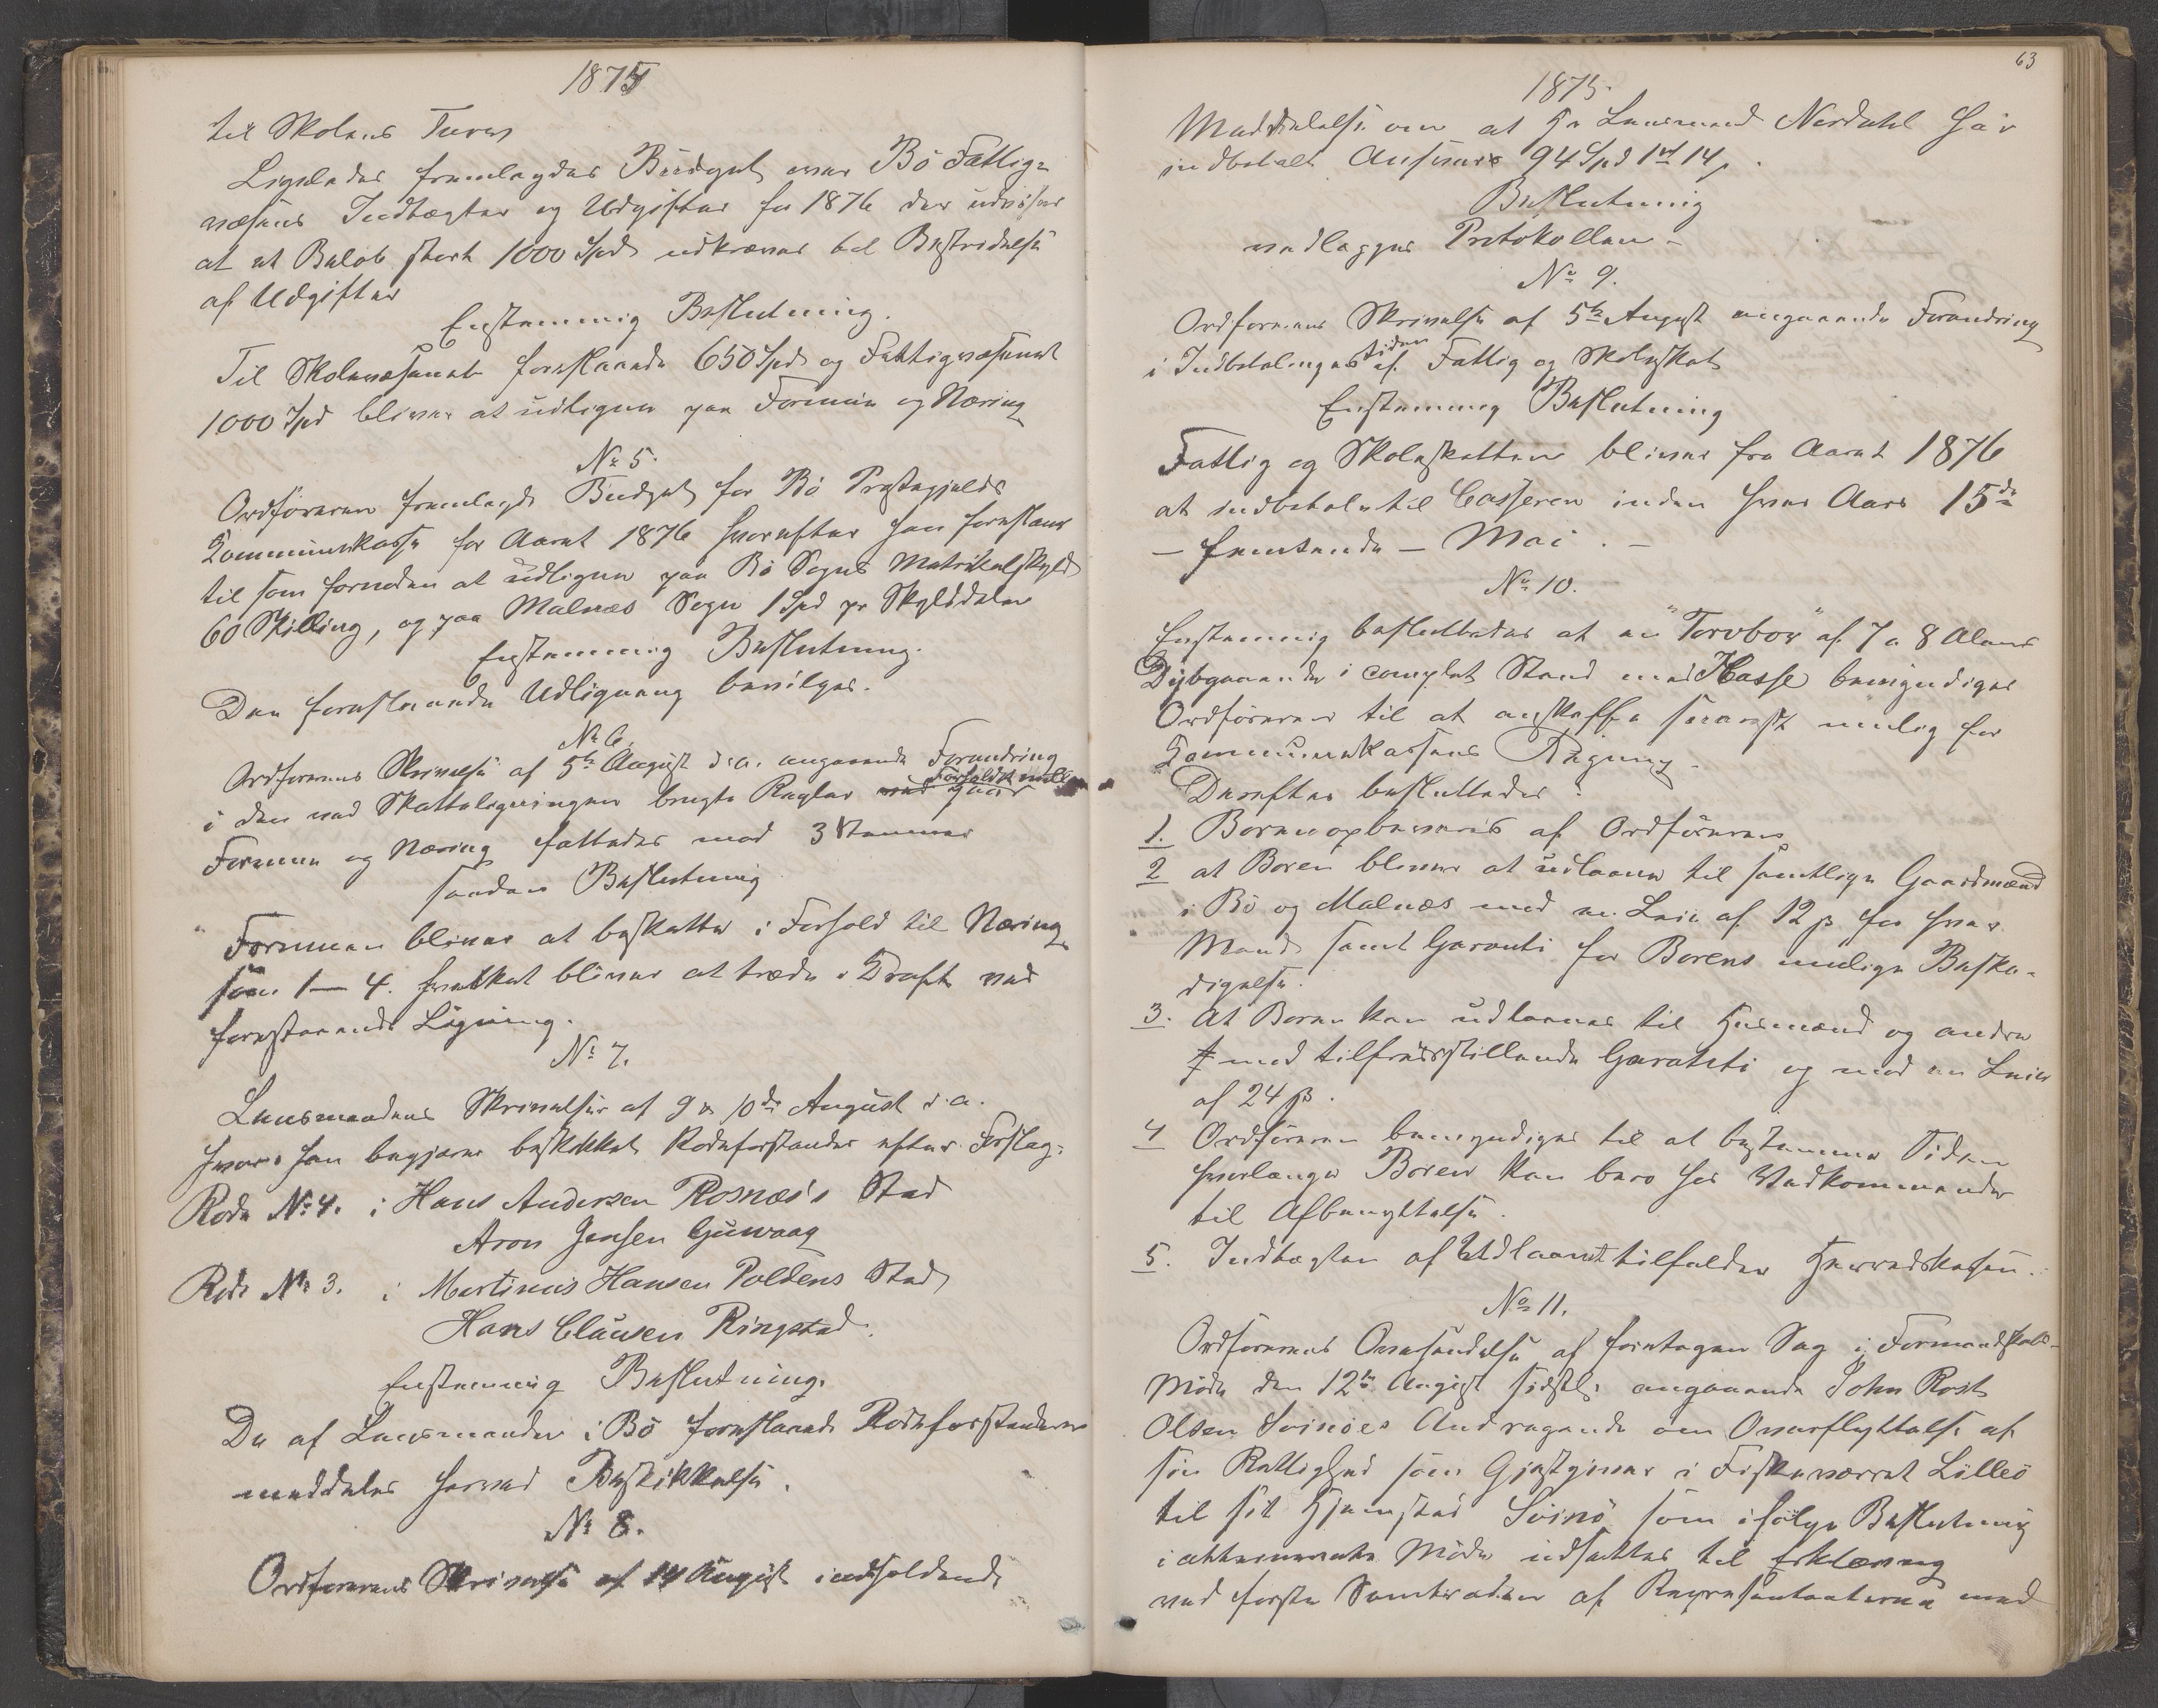 1875
til Skolens Tarv
Ligeledes fremlagdes Budget over Bö Fattig-
væsens Indtægter og Udgifter for 1876 der udviser
at et Belöb stort 1000 Spd udkræves til Bestridelse
af Udgifter
Enstemmig Beslutning.
Til Skolevæsenet foreslaaede 650 Spd og Fattigvæsenet
1000 Spd bliver at udligne paa Formue og Næring
No 5.
Ordföreren fremlagde Budget for Bö Præstegjelds
Kommunekasse for Aaret 1876 hvorefter han foreslaar
til som fornöden at udligne paa Bö Sogns Matrikelskyld
60 Skilling, og paa Malnæs Sogn 1 Spd pr Skylddaler
Enstemmig Beslutning.
Den foreslaaede Udligning bevilges.
No 6.
Ordförerens Skrivelse af 5te August d.a. angaaende Forandring
i den ved Skatteligningen brugte Regler Forholdet mell
Formue og Næring fattedes mod 3 Stemmer
saadan Beslutning
Formuen bliver at beskatte i Forhold til Næring
som 1 – 4. hvilket bliver at træde i Kraft ved
forestaaende Ligning.
No 7.
Lensmandens Skrivelse af 9 & 10de August d.a.
hvori han begjærer beskikket Rodeforstander efter Forslag:
Rode No 4. i Hans Andersen Rosnæs's Sted
Aron Jensen Guvaag
Rode No 3. i Martinus Hansen Poldens Sted
Hans Clausen Ringstad.
Enstemmig Beslutning.
De af Lensmanden i Bö foreslaaede Rodeforstandere
meddeles herved Beskikkelse.
No 8.
Ordförerens Skrivelse af 14 August indholdende
63
1875.
Meddelelse om at Hr Lensmand Nordahl har
indbetalt Ansvar 94 Spd 1 14
Beslutning
vedlægges Protokollen –
No 9.
Ordförerens Skrivelse af 5te August angaaende Forandring
i Indbetalings tiden af Fattig og Skoleskat
Enstemmig Beslutning
Fattig og Skoleskatten bliver fra Aaret 1876
at indbetale til Casseren inden hver Aars 15de
– femtende – Mai. –
No 10.
Enstemmig besluttedes at en "Torvbor" af 7 a 8 Alens
Dybgaaende i complet Stand med Kasse bemyndiges
Ordföreren til at anskaffe snarest mulig for
Kommunekassens Regning.
Derefter besluttedes:
1. Boren opbevares af Ordföreren
2 at Boren bliver at udlaane til samtlige Gaardmænd
i Bö og Malnæs med en Leie af 12 ß for hver
Mand samt Garanti for Borens mulige Beska-
digelse.
3. At Boren kan udlaanes til Husmænd og andre
mod tilfredsstillende Garanti og mod en Leie
af 24 ß.
4 Ordföreren bemyndiges til at bestemme Tiden
hvorlænge Boren kan bero hos Vedkommende
til Afbenyttelse.
5. Indtægten af Udlaanet tilfalder Herredskassen.
No 11.
Ordförerens Oversendelse af foretagen Sag i Formandskabs-
Möde den 12te August sidstl. angaaende John Rost
Olsen Svinöes Andragende om Overflyttelse af
sin Rettighed som Gjestgiver i Fiskeværet Lilleö
til sit Hjemsted Svinö som ifölge Beslutning
i attnævnte Möde udsattes til Erklæring
ved förste Samtræden af Repræsentanterne med